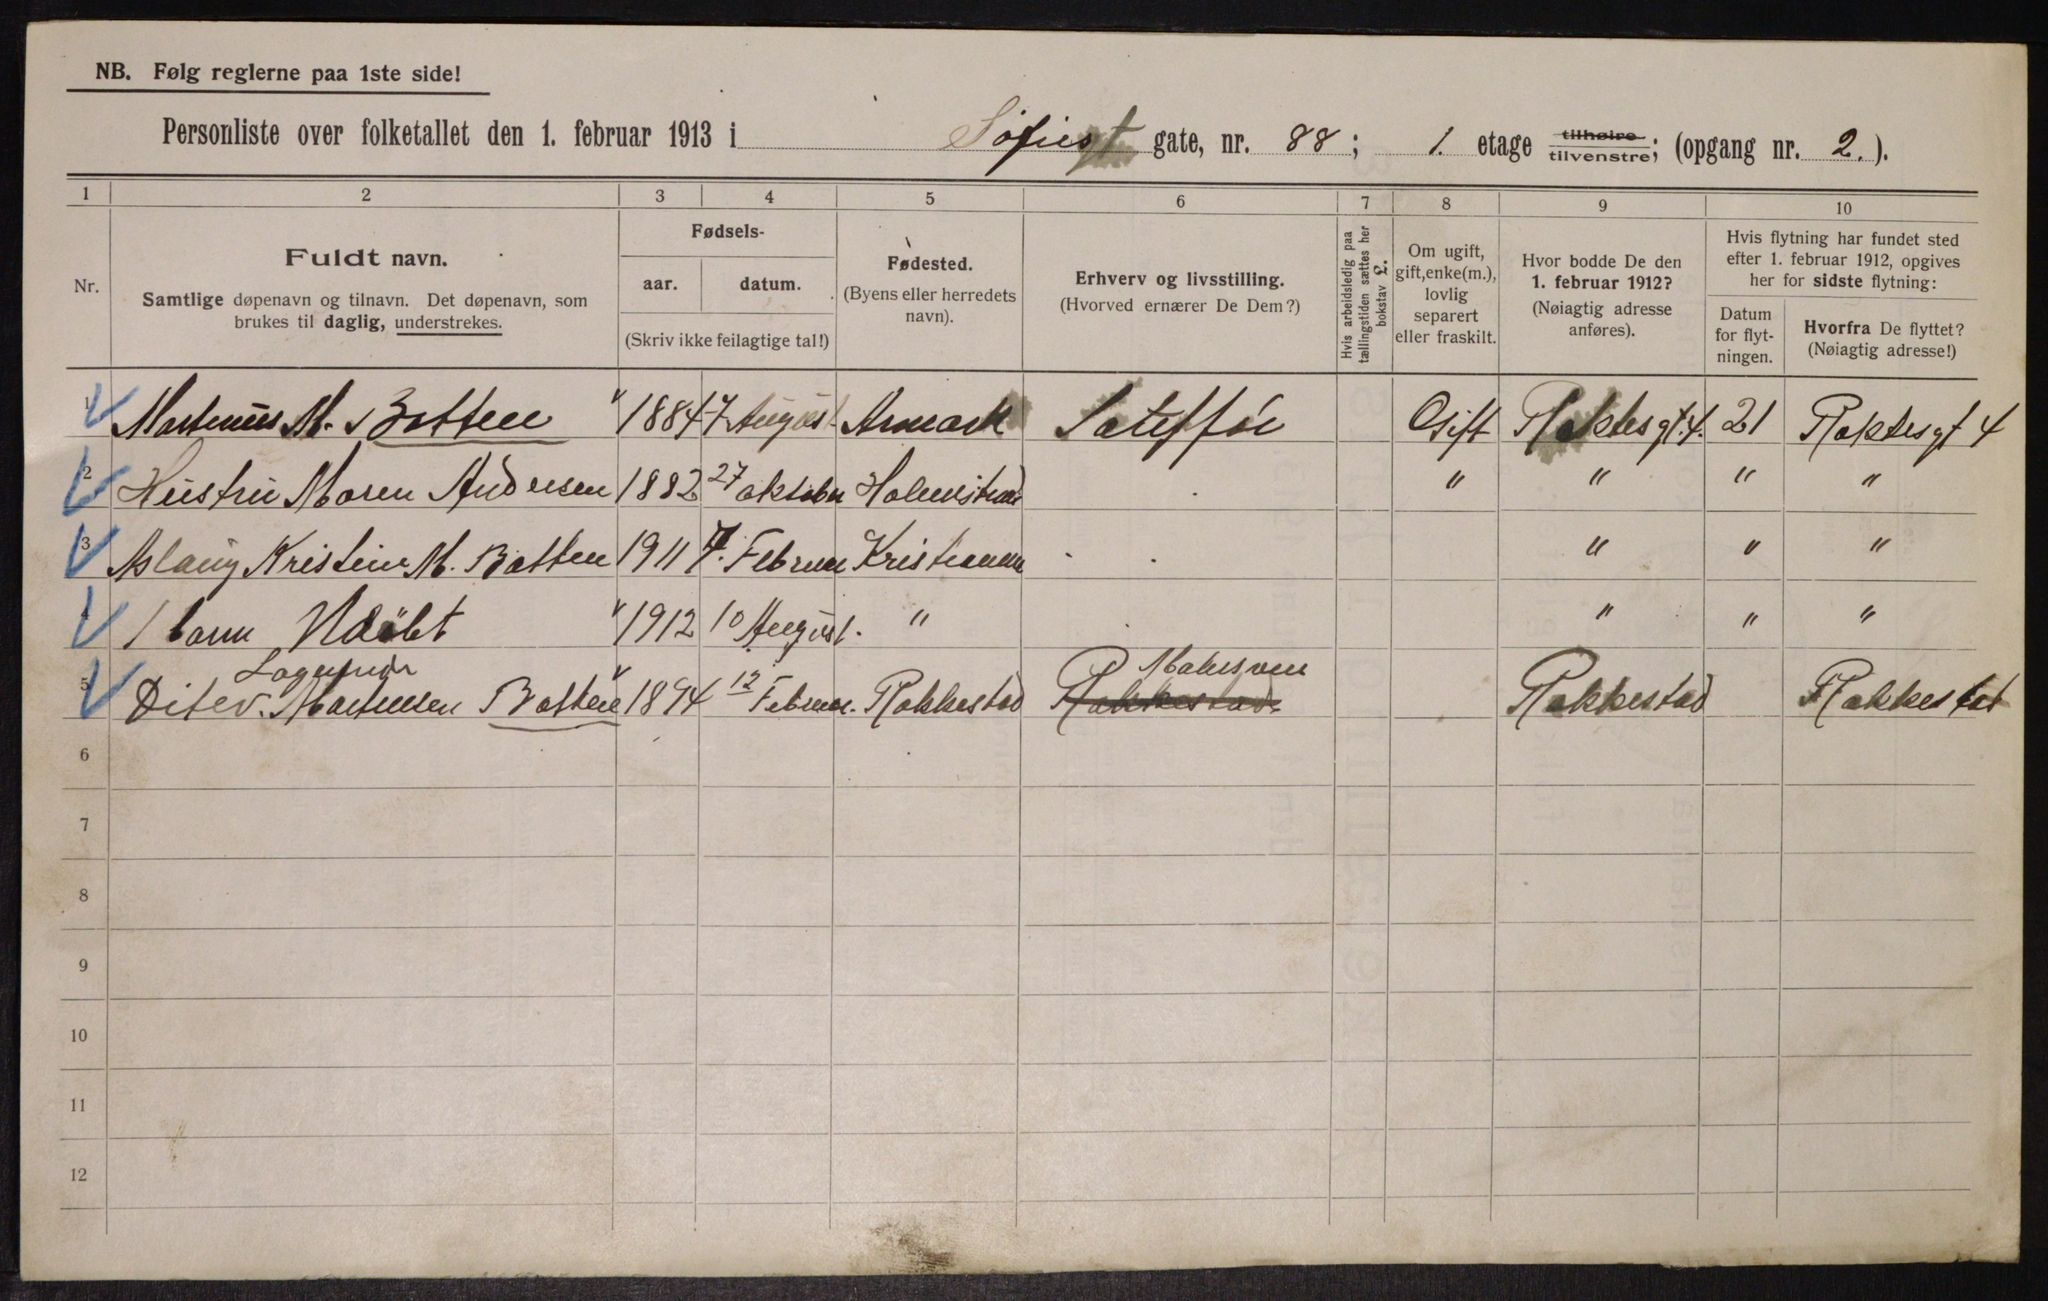 NB. Følg reglerne paa 1ste side!
Personliste over folketallet den 1. februar 1913 i Sofiesgt gate, nr. 88; 1. etage tilhøire tilvenstre; (opgang nr. 2.).
1 2 3 4 5 6 7 8 9 10
Nr.
Fuldt navn.
Samtlige døpenavn og tilnavn. Det døpenavn, som
brukes til daglig, understrekes.
Fødsels-
aar. datum.
(Skriv ikke feilagtige tal!)
Fødested.
(Byens eller herredets
navn).
Erhverv og livsstilling.
(Hvorved ernærer De Dem?)
Hvis arbeidsledig paa
tællingstiden sættes her
bokstav L.
Om ugift,
gift, enke(m.),
lovlig
separert
eller fraskilt.
Hvor bodde De den
1. februar 1912?
(Nøiagtig adresse
anføres).
Hvis flytning har fundet sted
efter 1. februar 1912, opgives
her for sidste flytning:
Datum
for flyt-
ningen.
Hvorfra De flyttet?
(Nøiagtig adresse!)
1 Martinius M. Botten 1884 7 August Aremark Gift 21
2 Hustru Maren Andresen 1882 27 oktober Holmestrand " " " "
3 Aslaug Kristine M. Botten 1911 7. Februar Kristiania " " "
4 1 barn Udöbt 1912 10 August. " " " "
Logerende Malersven
5 Ditlev. Martinsen Botten 1894 12 Februar. Rakkestad Rakkestad Rakkestad Rakkestad
6
7
8
9
10
11
12